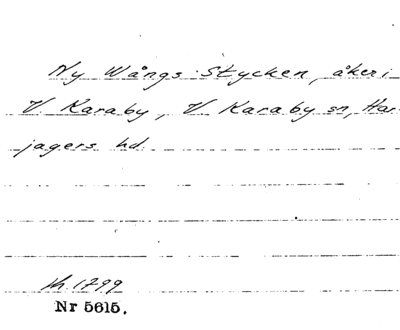 Ny Wångs Stycken, åker i
V. Karaby, V Karaby sn, Har
jagers hd.
1799
Nr 5615.